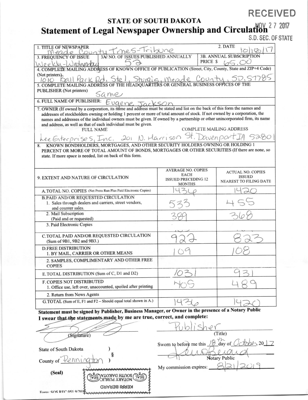 RECEIVED
NOV 27 2017
S.D. SEC. OF STATE
STATE OF SOUTH DAKOTA
Statement of Legal Newspaper Ownership and Circulation
1. TITLE OF NEWSPAPER
Meade County Times-Tribune
2. DATE
10/18/17
3. FREQUENCY OF ISSUE
Weekly-Wednesday
3A. NO. OF ISSUES PUBLISHED ANNUALLY
52
3B. ANNUAL SUBSCRIPTION
PRICE $
4. COMPLETE MAILING ADDRESS OF KNOWN OFFICE OF PUBLICATION (Street, City, County, State and ZIP+4 Code)
(Not printers).
Sturgis, Meade County, SD, 57785
5. COMPLETE MAILING ADDRESS OF THE HEADQUARTERS OR GENERAL BUSINESS OFFICES OF THE
PUBLISHER (Not printers)
Same
6. FULL NAME OF PUBLISHER:
Eugene Jackson
7. OWNER (If owned by a corporation, its name and address must be stated and list on the back of this form the names and
addresses of stockholders owning or holding 1 percent or more of total amount of stock. If not owned by a corporation, the
names and addresses of the individual owners must be given. If owned by a partnership or other unincorporated firm, its name
and address, as well as that of each individual must be given.
FULL NAME
COMPLETE MAILING ADDRESS
Lee Enterprises, Inc. 201 N. Harrison St. Davenport IA 52801
8. KNOWN BONDHOLDERS, MORTGAGES, AND OTHER SECURITY HOLDERS OWNING OR HOLDING 1
PERCENT OR MORE OF TOTAL AMOUNT OF BONDS, MORTGAGES OR OTHER SECURITIES (If there are none, so
state. If more space is needed, list on back of this form).
9. EXTENT AND NATURE OF CIRCULATION
AVERAGE NO. COPIES
EACH
ISSUED PRECEDING 12
MONTHS
ACTUAL NO. COPIES
ISSUED
NEAREST TO FILING DATE
A. TOTAL NO. COPIES
1436
1420
B. PAID AND/OR REQUESTED CIRCULATION
1. Sales through dealers and carriers, street vendors,
and counter sales
533
455
2. Mail Subscription
(Paid and or requested)
389
368
3. Paid Electronic Copies
C. TOTAL PAID AND/OR REQUESTED CIRCULATION
(Sum of 9B1, 9B2 and 9B3.)
922
823
D. FREE DISTRIBUTION
1. BY MAIL, CARRIER OR OTHER MEANS
109
108
2. SAMPLES, COMPLIMENTARY AND OTHER FREE
COPIES
E. TOTAL DISTRIBUTION (Sum of C, D1 and D2)
1031
931
F. COPIES NOT DISTRIBUTED
1. Office use, left over, unaccounted, spoiled after printing
405
489
2. Return from News Agents
G. TOTAL (Sum of E, F1 and F2 - Should equal total shown in A.)
1436
1420
Statement must be signed by Publisher, Business Manager, or Owner in the presence of a Notary Public
I swear that the statements made by me are true, correct, and complete:
Publisher
(Signature)
(Title)
State of South Dakota )
Sworn to before me this 18th day of October, 2017
County of Pennington )
Notary Public
(Seal)
My commission expires: 8/21/2019